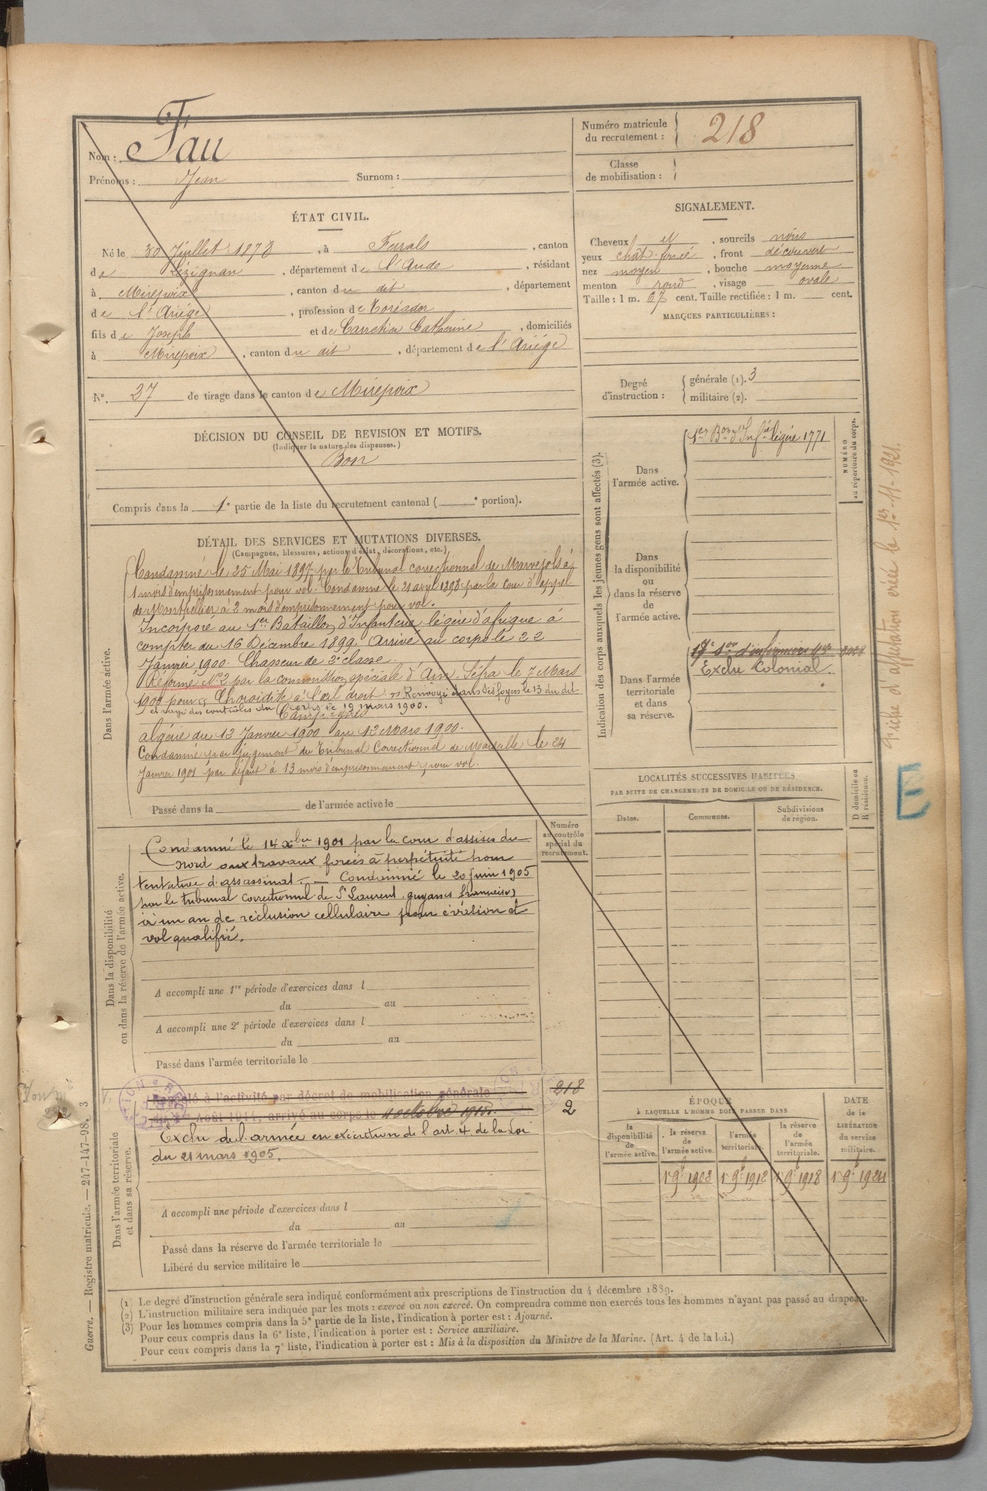 Nom : Fau
Prénoms : Jean Surnom :
Numéro matricule
du recrutement : 218
Classe
de mobilisation :
ÉTAT CIVIL.
Né le 30 Juillet 1878, à Ferrals, canton
de Lézignan, département de l'Aude, résidant
à Mirepoix, canton du dit, département
de l'Ariège, profession de Toréador
fils de Joseph et de Carretier Catherine, domiciliés
à Mirepoix, canton du dit, département de l'Ariège
N° 27 de tirage dans le canton de Mirepoix
SIGNALEMENT.
Cheveux et, sourcils noirs
yeux chat. foncé, front découvert
nez moyen, bouche moyenne
menton rond, visage ovale
Taille : 1 m. 67 cent. Taille rectifiée : 1 m. cent.
MARQUES PARTICULIÈRES :
Degré
d'instruction :
générale (1). 3
militaire (2).
DÉCISION DU CONSEIL DE REVISION ET MOTIFS.
(Indiquer la nature des dispenses.)
Bon
Compris dans la 1e partie de la liste du recrutement cantonal ( e portion).
DÉTAIL DES SERVICES ET MUTATIONS DIVERSES.
(Campagnes, blessures, actions d'éclat, décorations, etc.)
Dans l'armée active.
Condamné le 25 Mai 1897 par le Tribunal correctionnel de Marvejols à
1 mois d'emprisonnement pour vol. Condamné le 21 avril 1898 par la cour d'appel
de Montpellier à 2 mois d'emprisonnement pour vol.
Incorporé au 1er Bataillon d'Infanterie légère d'afrique à
compter du 16 Décembre 1899. Arrivé au corps le 22
Janvier 1900. Chasseur de 2e classe
Réformé N°2 par la Commission spéciale d'Aïn Sefra le 7 Mars
1900 pour Choroïdite à l'œil droit Renvoyé dans ses foyers le 13 du dit
et rayé des contrôles du Corps le 19 mars 1900.
Campagnes
algérie du 12 Janvier 1900 au 12 Mars 1900.
Condamné par jugement du Tribunal Correctionnel de Marseille le 24
Janvier 1901 par défaut à 13 mois d'emprisonnement pour vol.
Passé dans la de l'armée active le
Numéro
au contrôle
spécial du
recrutement.
Dans la disponibilité
ou dans la réserve de l'armée active.
Condamné le 14 Xbre 1901 par la cour d'assises du
Nord aux travaux forcés à perpétuité pour
tentative d'assassinat. — Condamné le 20 juin 1905
par le tribunal correctionnel de St Laurent (guyane française)
à un an de réclusion cellulaire pour évasion et
vol qualifié.
A accompli une 1re période d'exercices dans l
du au
A accompli une 2e période d'exercices dans l
du au
Passé dans l'armée territoriale le
Dans l'armée territoriale
et dans sa réserve.
Rappelé à l'activité par décret de mobilisation générale
Août 1914, arrivé au corps le
218
2
Exclu de l'armée en exécution de l'art. 4 de la Loi
du 21 mars 1905.
A accompli une période d'exercices dans l
du au
Passé dans la réserve de l'armée territoriale le
Libéré du service militaire le
Indication des corps auxquels les jeunes gens sont affectés (3).
NUMÉRO
au répertoire du corps.
Dans
l'armée active.
1er Bon d'Inf.ie légère 1771
Dans
la disponibilité
ou
dans la réserve
de
l'armée active.
Dans l'armée
territoriale
et dans
sa réserve.
Exclu Colonial.
LOCALITÉS SUCCESSIVES HABITÉES
PAR SUITE DE CHANGEMENTS DE DOMICILE OU DE RÉSIDENCE.
Dates. Communes. Subdivisions
de région.
D domicile ou
R résidence.
ÉPOQUE
À LAQUELLE L'HOMME DOIT PASSER DANS
la
disponibilité
de
l'armée active.
la réserve
de
l'armée active.
l'armée
territoriale.
la réserve
de
l'armée
territoriale.
DATE
de la
LIBÉRATION
du service
militaire.
1er 9bre 1902 1er 9bre 1912 1er 9bre 1918 1er 9bre 1924
(1) Le degré d'instruction générale sera indiqué conformément aux prescriptions de l'instruction du 4 décembre 1889.
(2) L'instruction militaire sera indiquée par les mots : exercé ou non exercé. On comprendra comme non exercés tous les hommes n'ayant pas passé au drapeau.
(3) Pour les hommes compris dans la 5e partie de la liste, l'indication à porter est : Ajourné.
Pour ceux compris dans la 6e liste, l'indication à porter est : Service auxiliaire.
Pour ceux compris dans la 7e liste, l'indication à porter est : Mis à la disposition du Ministre de la Marine. (Art. 4 de la loi.)
Guerre. — Registre matricule. — 247-147-98. 3
Fiche d'affectation créée le 1er-11-1921.
E